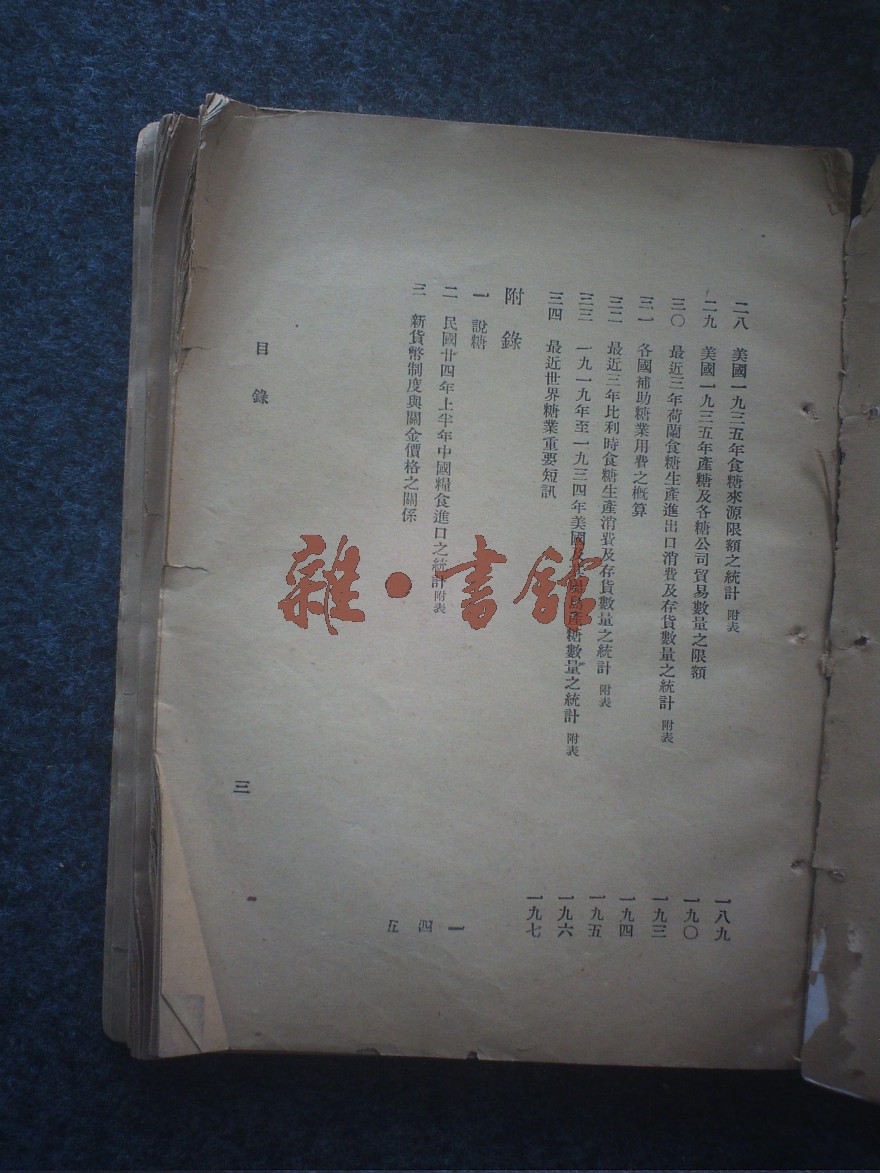 二八 美國一九三五年食糖來源限額之統計 附表 一八九
二九 美國一九三五年產糖及各糖公司貿易數量之限額 一九〇
三〇 最近三年荷蘭食糖生產進出口消費及存貨數量之統計 附表 一九三
三一 各國補助糖業用費之概算 一九四
三二 最近三年比利時食糖生產消費及存貨數量之統計 附表 一九五
三三 一九一九年至一九三四年美國 島產糖數量之統計 附表 一九六
三四 最近世界糖業重要短訊 一九七
附錄
一 說糖 一
二 民國廿四年上半年中國糧食進口之統計 附表 四
三 新貨幣制度與關金價格之關係 五
目錄
三
雜·書館